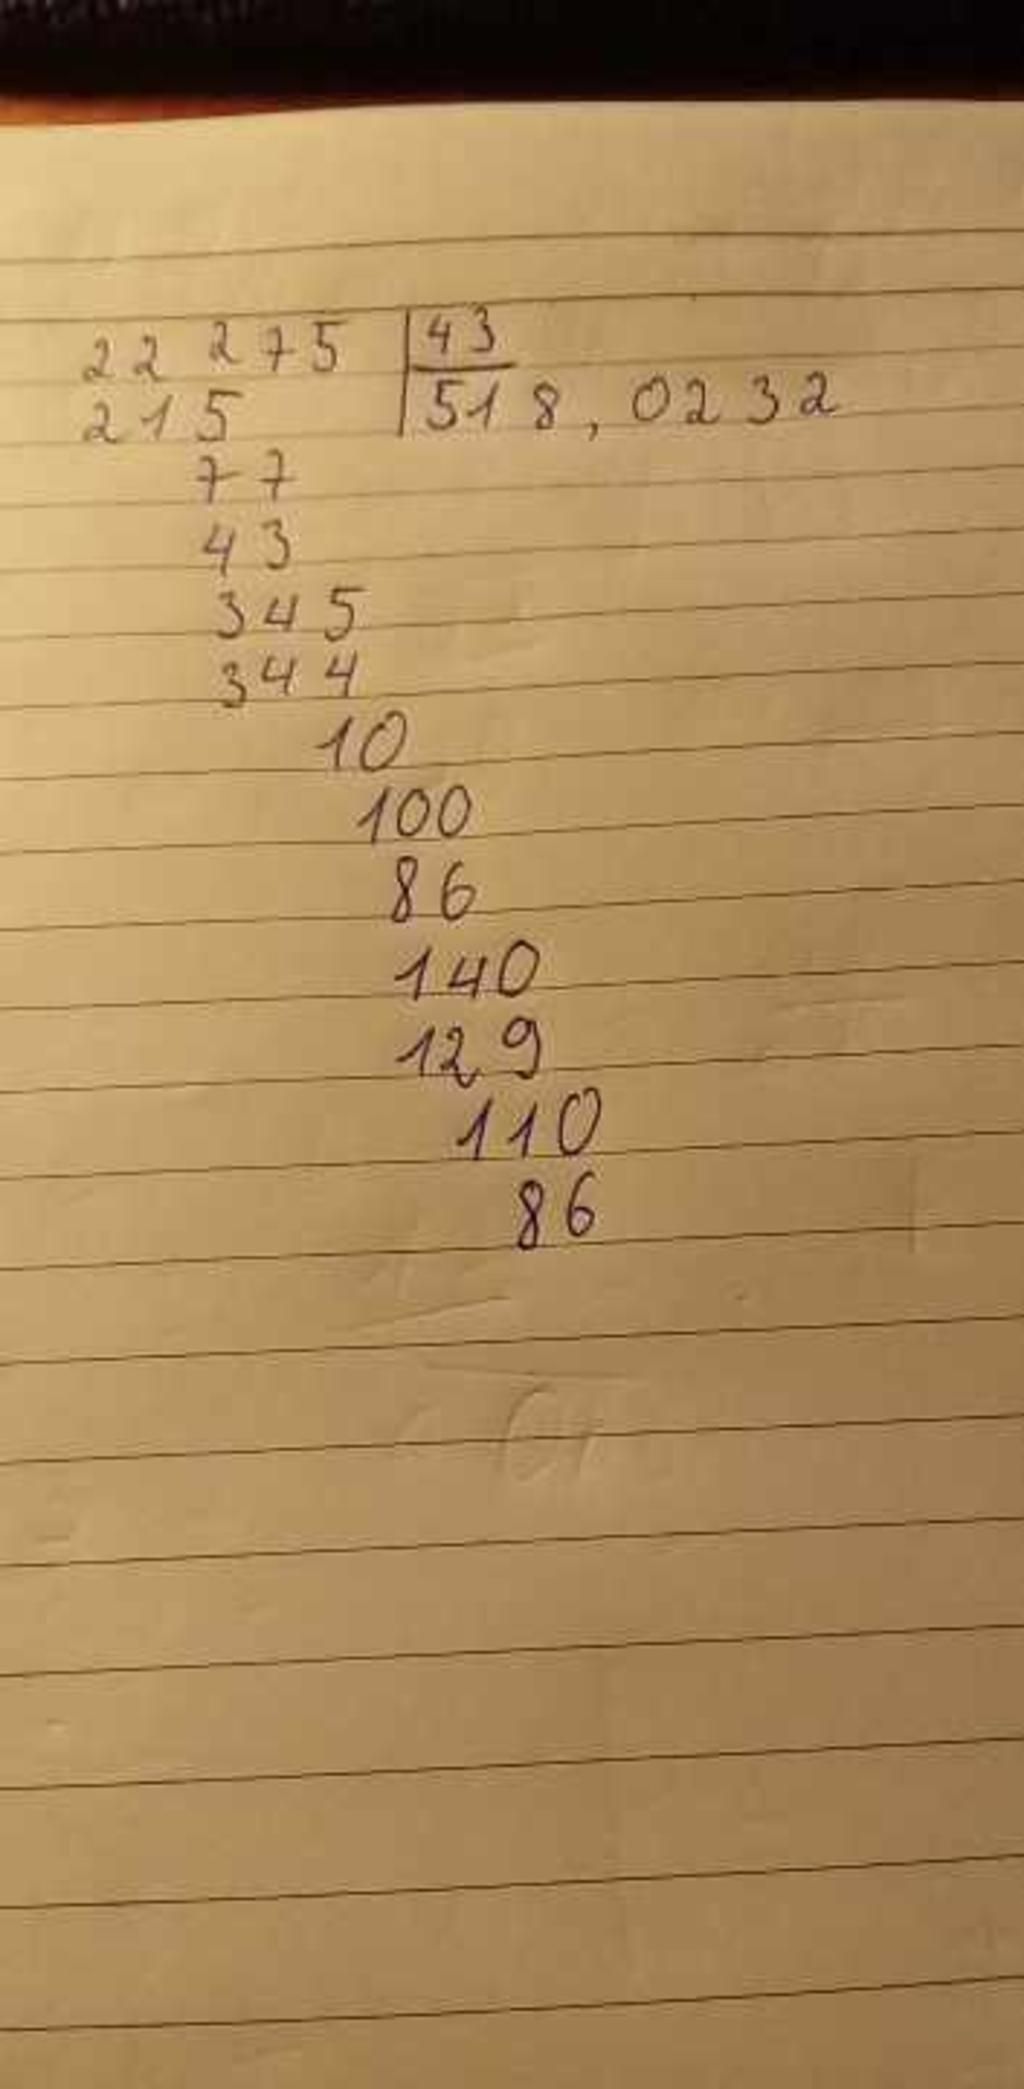 22 275 43
215 518,0232
77
43
345
344
10
100
86
140
129
110
86